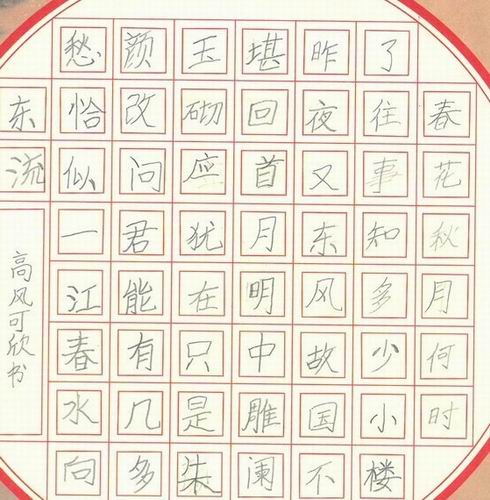 春花秋月何时
了往事知多少小楼
昨夜又东风故国不
堪回首月明中雕阑
玉砌应犹在只是朱
颜改问君能有几多
愁恰似一江春水向
东流
高风可欣书